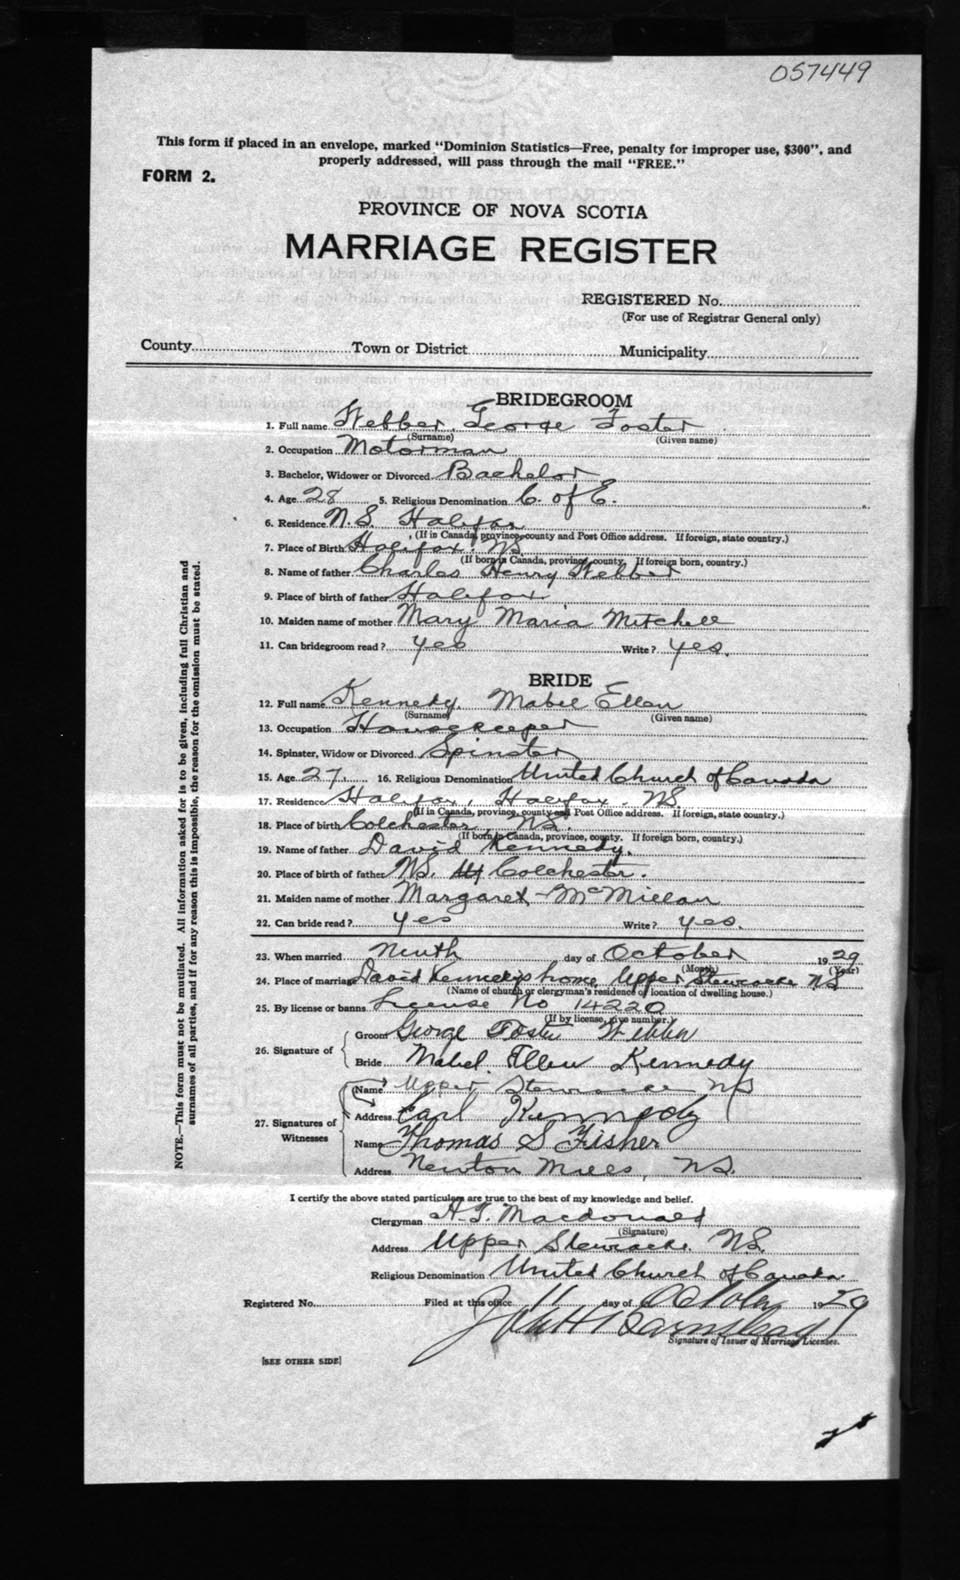 057449
This form if placed in an envelope, marked "Dominion Statistics—Free, penalty for improper use, $300", and
properly addressed, will pass through the mail "FREE."
FORM 2.
PROVINCE OF NOVA SCOTIA
MARRIAGE REGISTER
REGISTERED No.
(For use of Registrar General only)
County Town or District Municipality
BRIDEGROOM
1. Full name Webber, George Foster
(Surname) (Given name)
2. Occupation Motorman
3. Bachelor, Widower or Divorced Bachelor
4. Age 28 5. Religious Denomination C. of E.
6. Residence N.S. Halifax
(If in Canada, province, county and Post Office address. If foreign, state country.)
7. Place of Birth Halifax. NS.
(If born in Canada, province, county. If foreign born, country.)
8. Name of father Charles Henry Webber
9. Place of birth of father Halifax
10. Maiden name of mother Mary Maria Mitchell
11. Can bridegroom read? yes Write? yes.
BRIDE
12. Full name Kennedy, Mabel Ellen
(Surname) (Given name)
13. Occupation Housekeeper
14. Spinster, Widow or Divorced Spinster
15. Age 27. 16. Religious Denomination United Church of Canada
17. Residence Halifax, Halifax. NS
(If in Canada, province, county and Post Office address. If foreign, state country.)
18. Place of birth Colchester NS.
(If born in Canada, province, county. If foreign born, country.)
19. Name of father David Kennedy.
20. Place of birth of father NS. Colchester.
21. Maiden name of mother Margaret McMillan
22. Can bride read? yes Write? yes.
23. When married Ninth day of October 1929
(Month) (Year)
24. Place of marriage David Kennedy's home, Upper Stewiacke NS
(Name of church or clergyman's residence or location of dwelling house.)
25. By license or banns License No 14220
(If by license, give number.)
26. Signature of Groom George Foster Webber
Bride Mabel Ellen Kennedy
27. Signatures of Witnesses
Name Upper Stewiacke NS
Address Earl Kennedy
Name Thomas S Fisher
Address Newton Mills, NS.
I certify the above stated particulars are true to the best of my knowledge and belief.
Clergyman A. Macdonald
(Signature)
Address Upper Stewiacke N.S.
Religious Denomination United Church of Canada
Registered No. Filed at this office 11 day of October 1929
John H
Signature of Issuer of Marriage Licenses.
[SEE OTHER SIDE]
NOTE.—This form must not be mutilated. All information asked for is to be given, including full Christian and
surnames of all parties, and if for any reason this is impossible, the reason for the omission must be stated.